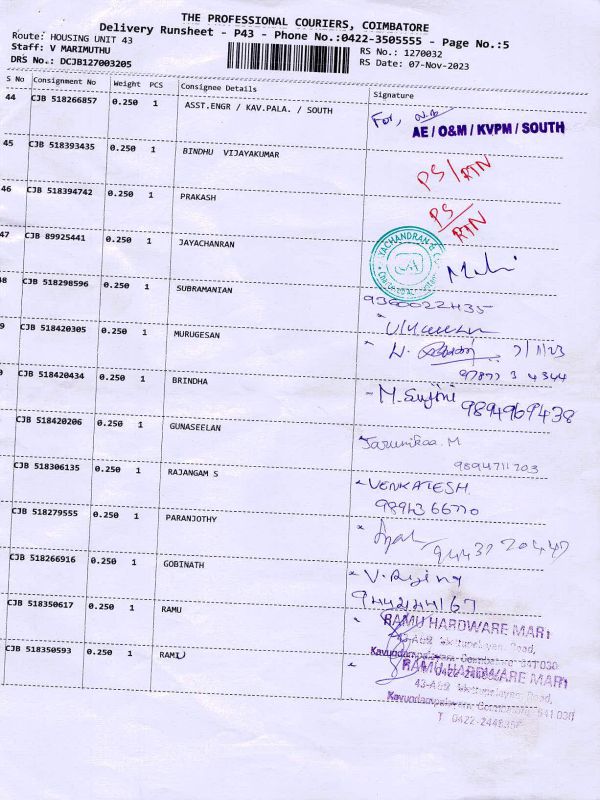 THE PROFESSIONAL COURIERS, COIMBATORE
Delivery Runsheet - P43 - Phone No.:0422-3505555 - Page No.:5
Route: HOUSING UNIT 43
Staff: V MARIMUTHU
RS No.: 1270032
DRS No.: DCJB127003205
RS Date: 07-Nov-2023
S No Consignment No Weight PCS Consignee Details Signature
44 CJB 518266857 0.250 1 ASST.ENGR / KAV.PALA. / SOUTH For,
AE / O&M / KVPM / SOUTH
45 CJB 518393435 0.250 1 BINDHU VIJAYAKUMAR PS/RTN
46 CJB 518394742 0.250 1 PRAKASH PS/RTN
47 CJB 89925441 0.250 1 JAYACHANRAN
48 CJB 518298596 0.250 1 SUBRAMANIAN 9360022435
9 CJB 518420305 0.250 1 MURUGESAN 7/11/23
97877 3 4344
CJB 518420434 0.250 1 BRINDHA - M. Sujini 9894969438
CJB 518420206 0.250 1 GUNASEELAN Tarunikaa. M
9894711703
CJB 518306135 0.250 1 RAJANGAM S VENKATESH
9894366770
CJB 518279555 0.250 1 PARANJOTHY
94437 20447
CJB 518266916 0.250 1 GOBINATH
9442244167
CJB 518350617 0.250 1 RAMU RAMU HARDWARE MART
Kavundampalayam, Coimbatore 641 030
CJB 518350593 0.250 1 RAMU RAMU HARDWARE MART